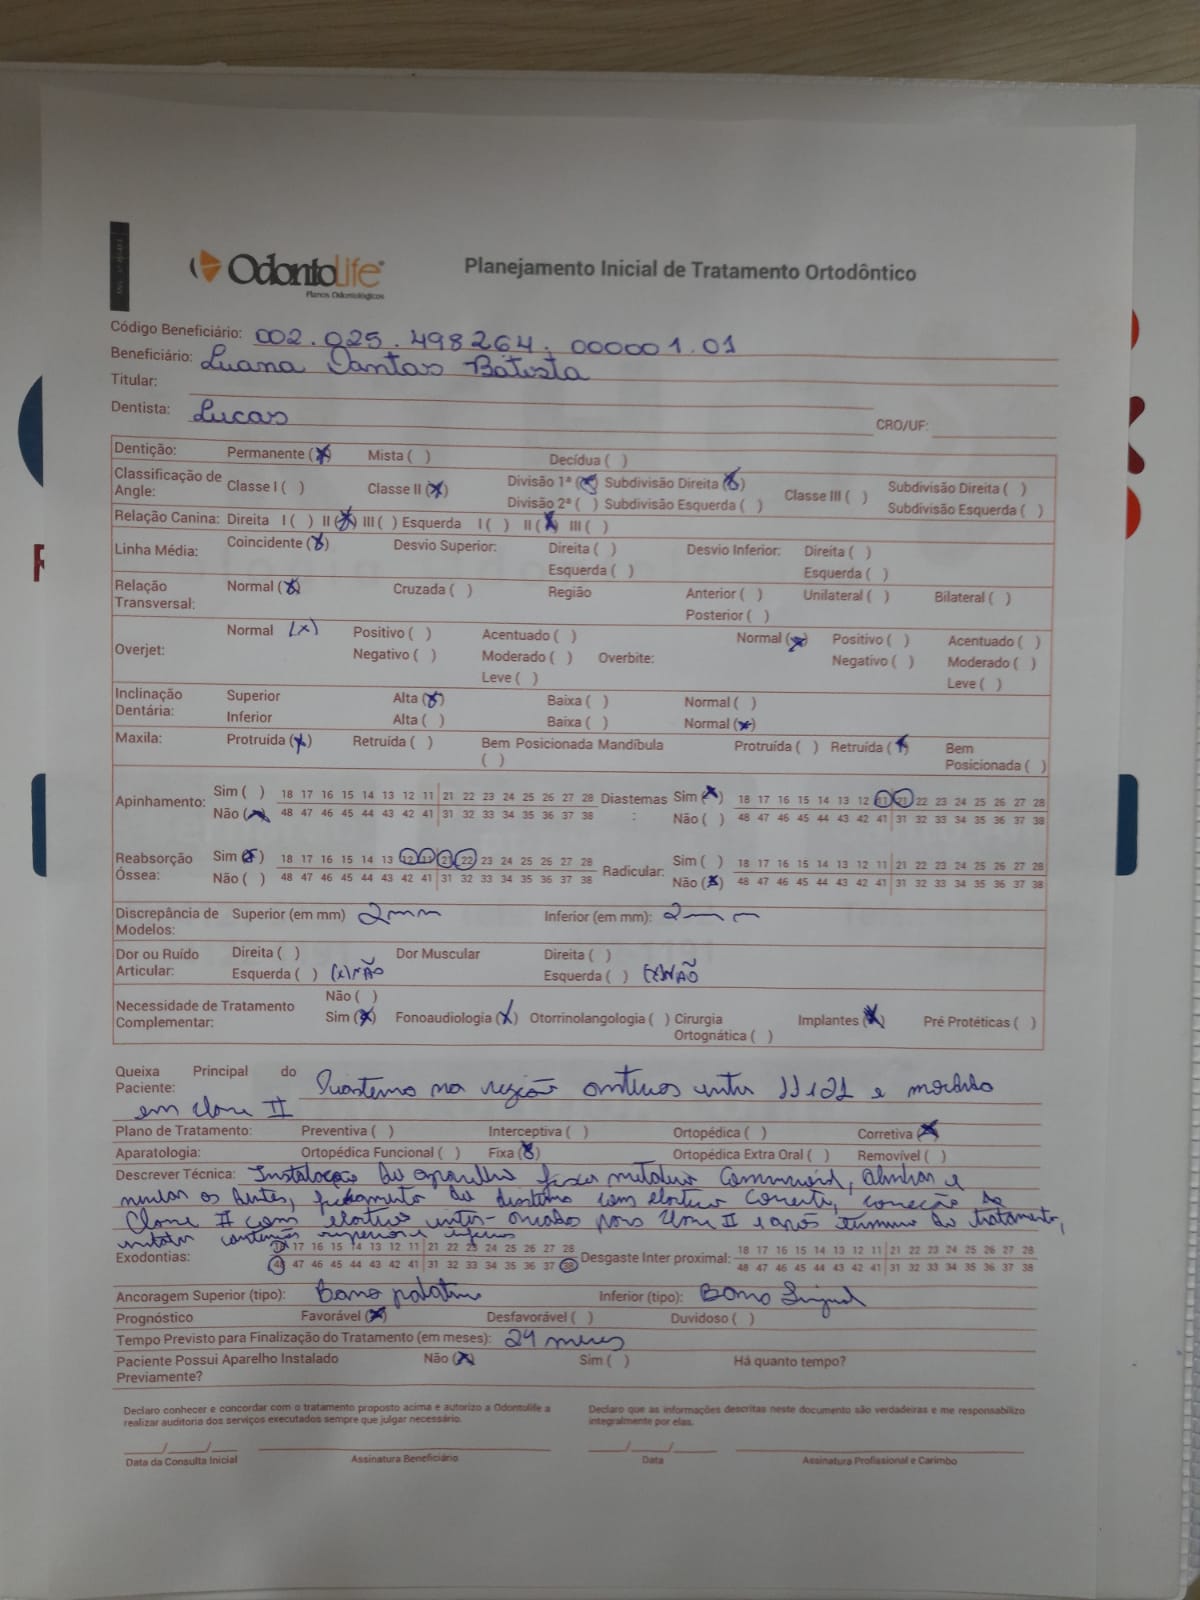 OdontoLife
Planos Odontológicos
Planejamento Inicial de Tratamento Ortodôntico
Código Beneficiário: 002.025.498264.000001.01
Beneficiário: Luana Santos Batista
Titular:
Dentista: Lucas CRO/UF:
Dentição: Permanente (x) Mista ( ) Decídua ( )
Classificação de Angle: Classe I ( ) Classe II (x) Divisão 1ª (x) Subdivisão Direita (x) Classe III ( ) Subdivisão Direita ( )
Divisão 2ª ( ) Subdivisão Esquerda ( ) Subdivisão Esquerda ( )
Relação Canina: Direita I ( ) II (x) III ( ) Esquerda I ( ) II (x) III ( )
Linha Média: Coincidente (x) Desvio Superior: Direita ( ) Desvio Inferior: Direita ( )
Esquerda ( ) Esquerda ( )
Relação Transversal: Normal (x) Cruzada ( ) Região Anterior ( ) Unilateral ( ) Bilateral ( )
Posterior ( )
Overjet: Normal (x) Positivo ( ) Acentuado ( ) Overbite: Normal (x) Positivo ( ) Acentuado ( )
Negativo ( ) Moderado ( ) Negativo ( ) Moderado ( )
Leve ( ) Leve ( )
Inclinação Dentária: Superior Alta (x) Baixa ( ) Normal ( )
Inferior Alta ( ) Baixa ( ) Normal (x)
Maxila: Protruída (x) Retruída ( ) Bem Posicionada ( ) Mandíbula Protruída ( ) Retruída (x) Bem Posicionada ( )
Apinhamento: Sim ( ) 18 17 16 15 14 13 12 11 21 22 23 24 25 26 27 28 Diastemas: Sim (x) 18 17 16 15 14 13 12 11 21 22 23 24 25 26 27 28
Não (x) 48 47 46 45 44 43 42 41 31 32 33 34 35 36 37 38 Não ( ) 48 47 46 45 44 43 42 41 31 32 33 34 35 36 37 38
Reabsorção Óssea: Sim (x) 18 17 16 15 14 13 12 11 21 22 23 24 25 26 27 28 Radicular: Sim ( ) 18 17 16 15 14 13 12 11 21 22 23 24 25 26 27 28
Não ( ) 48 47 46 45 44 43 42 41 31 32 33 34 35 36 37 38 Não (x) 48 47 46 45 44 43 42 41 31 32 33 34 35 36 37 38
Discrepância de Modelos: Superior (em mm) 2mm Inferior (em mm): 2mm
Dor ou Ruído Articular: Direita ( ) Dor Muscular Direita ( )
Esquerda ( ) (x) NÃO Esquerda ( ) (x) NÃO
Necessidade de Tratamento Complementar: Não ( )
Sim (x) Fonoaudiologia (x) Otorrinolangologia ( ) Cirurgia Ortognática ( ) Implantes (x) Pré Protéticas ( )
Queixa Principal do Paciente: Diastema na região anterior entre 11 e 21 e mordida
em classe II
Plano de Tratamento: Preventiva ( ) Interceptiva ( ) Ortopédica ( ) Corretiva (x)
Aparatologia: Ortopédica Funcional ( ) Fixa (x) Ortopédica Extra Oral ( ) Removível ( )
Descrever Técnica: Instalação do aparelho fixo metálico convencional, alinhar e
nivelar os dentes, fechamento do diastema com elástico corrente, correção da
Classe II com elástico inter-maxilar para classe II e após término do tratamento,
instalar contenção superior e inferior
Exodontias: 18 17 16 15 14 13 12 11 21 22 23 24 25 26 27 28 Desgaste Inter proximal: 18 17 16 15 14 13 12 11 21 22 23 24 25 26 27 28
48 47 46 45 44 43 42 41 31 32 33 34 35 36 37 38 48 47 46 45 44 43 42 41 31 32 33 34 35 36 37 38
Ancoragem Superior (tipo): Barra palatina Inferior (tipo): Barra Lingual
Prognóstico Favorável (x) Desfavorável ( ) Duvidoso ( )
Tempo Previsto para Finalização do Tratamento (em meses): 24 meses
Paciente Possui Aparelho Instalado Previamente? Não (x) Sim ( ) Há quanto tempo?
Declaro conhecer e concordar com o tratamento proposto acima e autorizo a Odontolife a realizar auditoria dos serviços executados sempre que julgar necessário.
Declaro que as informações descritas neste documento são verdadeiras e me responsabilizo integralmente por elas.
Data da Consulta Inicial Assinatura Beneficiário Data Assinatura Profissional e Carimbo